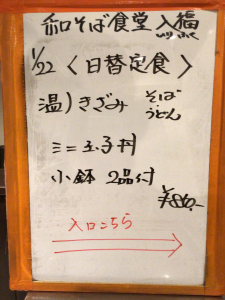 和そば食堂 入福
いりふく
1/22 〈日替定食〉
温）きざみ そば
うどん
ミニ玉子丼
小鉢 2品付
¥860.-
入口こちら